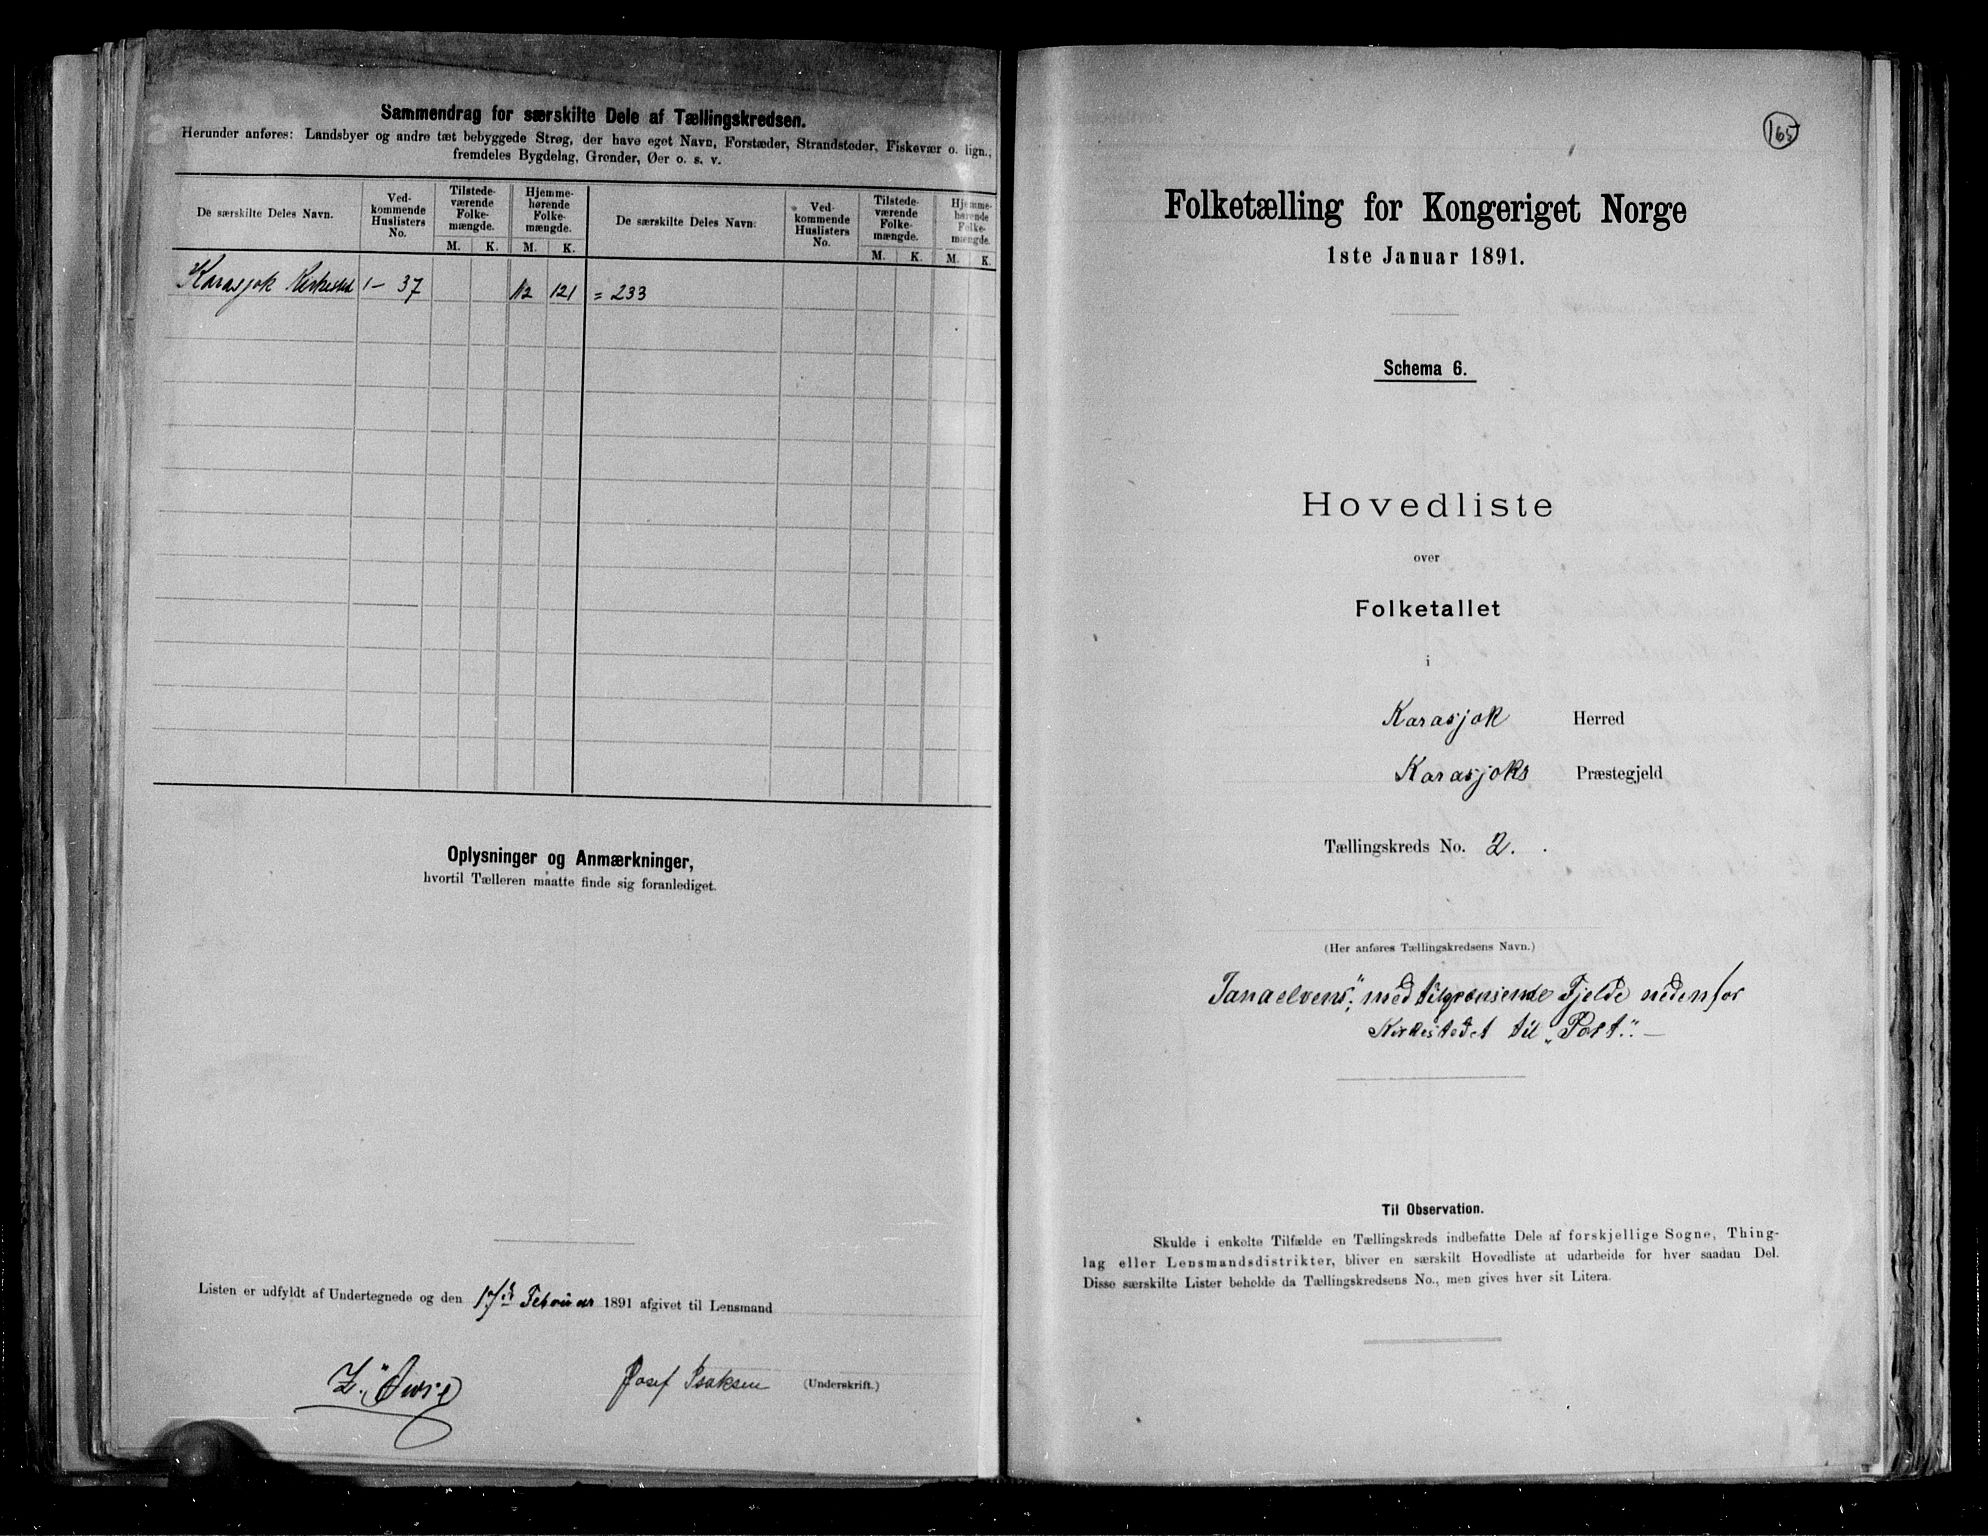 Sammendrag for særskilte Dele af Tællingskredsen.
Herunder anføres: Landsbyer og andre tæt bebyggede Strøg, der have eget Navn, Forstæder, Strandsteder, Fiskevær o. lign.,
fremdeles Bygdelag, Grender, Øer o. s. v.
De særskilte Deles Navn.
Ved-
kommende
Huslisters
No.
Tilstede-
værende
Folke-
mængde.
M. K.
Hjemme-
hørende
Folke-
mængde.
M. K.
De særskilte Deles Navn.
Ved-
kommende
Huslisters
No.
Tilstede-
værende
Folke-
mængde.
M. K.
Hjemme-
hørende
Folke-
mængde.
M. K.
Karasjok Kirkested 1 - 37 112 121 = 233
Oplysninger og Anmærkninger,
hvortil Tælleren maatte finde sig foranlediget.
Listen er udfyldt af Undertegnede og den 17de Februar 1891 afgivet til Lensmand
Josef Isaksen (Underskrift.)
165
Folketælling for Kongeriget Norge
1ste Januar 1891.
Schema 6.
Hovedliste
over
Folketallet
i
Karasjok Herred
Karasjoks Præstegjeld
Tællingskreds No. 2.
(Her anføres Tællingskredsens Navn.)
Tanaelvens", med tilgrænsende Fjelde nedenfor
Kirkestedet til "Port". —
Til Observation.
Skulde i enkelte Tilfælde en Tællingskreds indbefatte Dele af forskjellige Sogne, Thing-
lag eller Lensmandsdistrikter, bliver en særskilt Hovedliste at udarbeide for hver saadan Del.
Disse særskilte Lister beholde da Tællingskredsens No., men gives hver sit Litera.